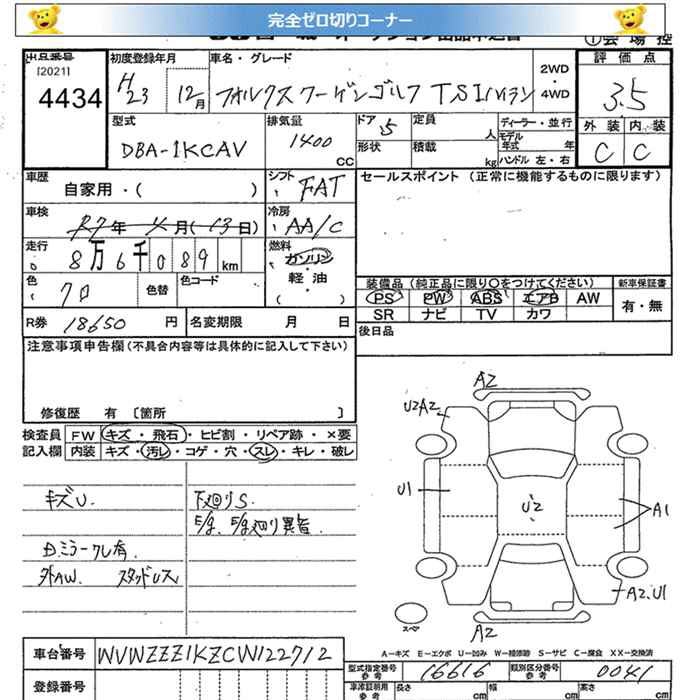 完全ゼロ切りコーナー
①会場控
出品番号
[2021]
4434
初度登録年月
H23 12月
車名・グレード
フォルクスワーゲンゴルフ TSIハイライン
2WD
4WD
評価点
3.5
外装 内装
C C
型式
DBA-1KCAV
排気量
1400 CC
ドア 5
形状
定員 人
積載 kg
ディーラー・並行
モデル年式 年
ハンドル 左・右
車歴
自家用・( )
シフト
FAT
セールスポイント (正常に機能するものに限ります)
車検
R7年 月(13日)
冷房
AA/C
走行
8万6千089km
燃料
ガソリン
・
軽油
( )
色
色替
色コード
装備品 (純正品に限り○をつけてください)
新車保証書
PS PW ABS エアB AW
有・無
SR ナビ TV カワ
R券 18650円
名変期限 月 日
後日品
注意事項申告欄(不具合内容等は具体的に記入して下さい)
修復歴 有 〔箇所 〕
検査員記入欄
FW キズ・飛石・ヒビ割・リペア跡・×要
内装 キズ・汚レ・コゲ・穴・スレ・キレ・破レ
キズU.
下廻りS.
E/g、E/g廻り異音.
ミラークレ有
外AW. スタッドレス
A2
U2A2
U1
U2
A1
A2.U1
A2
スペア
A－キズ E－エクボ U－凹み W－補修跡 S－サビ C－腐食 XX－交換済
車台番号
WVWZZZ1KZCW122712
型式指定番号 参考
16616
類別区分番号 参考
0041
登録番号
車検証期日 参考
長さ cm
幅 cm
高さ cm